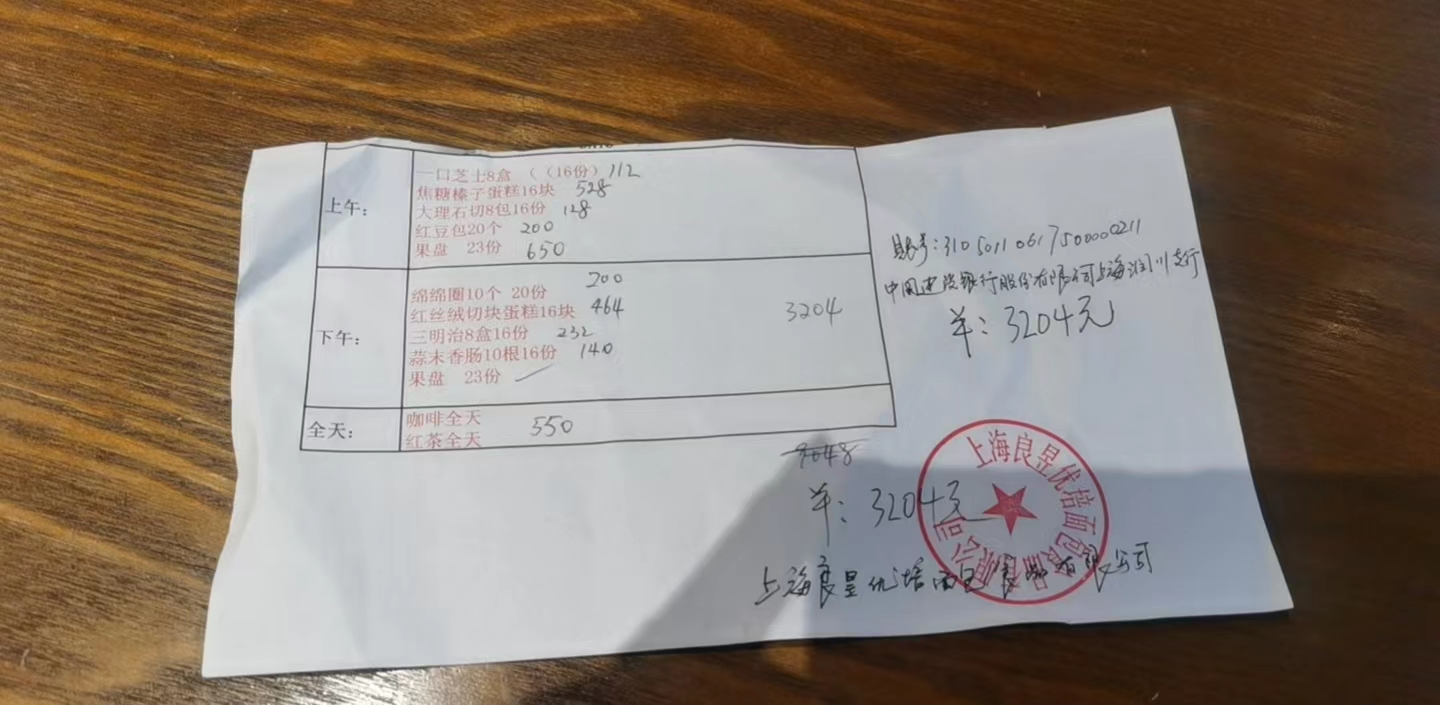 上午:
一口芝士8盒 ((16份) 112
焦糖榛子蛋糕16块 528
大理石切8包16份 128
红豆包20个 200
果盘 23份 650
下午:
绵绵圈10个 20份 200
红丝绒切块蛋糕16块 464
三明治8盒16份 232
蒜末香肠10根16份 140
果盘 23份
3204
全天:
咖啡全天
红茶全天
550
账号:31050110617500000211
中国建设银行股份有限公司上海润川支行
羊:3204元
羊:3204元
上海良昱优培面包食品有限公司
上海良昱优培面包食品有限公司